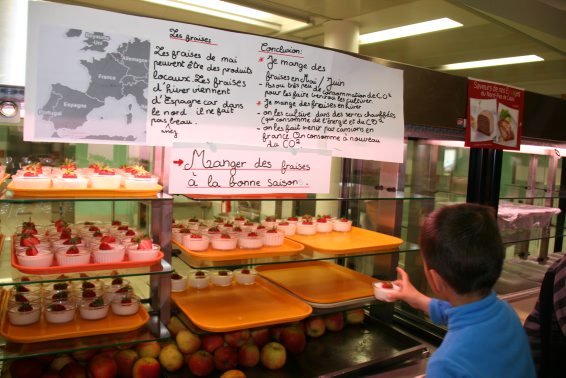 Les fraises
Les fraises de mai
peuvent être des produits
locaux. Les fraises
d'hiver viennent
d'Espagne car dans
le nord il ne fait
pas beau.
Conclusion:
Je mange des
fraises en Mai / Juin
très peu de consommation de CO²
pour les faire venir ou les cultiver.
* Je mange des fraises en hiver
- on les cultive dans des serres chauffées
(qui consomme de l'énergie et du CO²)
- on les fait venir par camions en
france. On consomme à nouveau
du CO²
→ Manger des fraises
à la bonne saison.
Allemagne
France
Espagne
Portugal
Saveurs de nos Régions